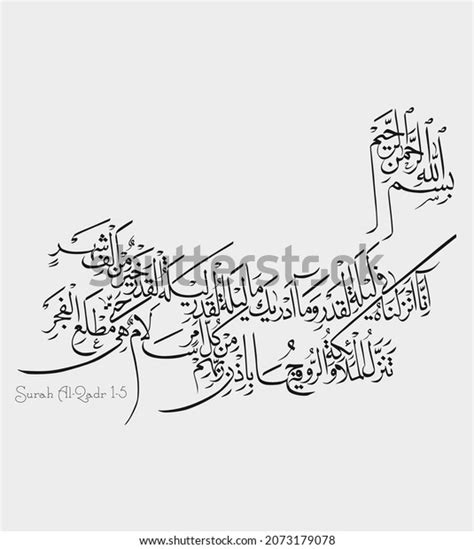 بِسْمِ اللهِ الرَّحْمٰنِ الرَّحِيْمِ
إِنَّا أَنْزَلْنَاهُ فِي لَيْلَةِ الْقَدْرِ وَمَا أَدْرٰيكَ مَا لَيْلَةُ الْقَدْرِ لَيْلَةُ الْقَدْرِ خَيْرٌ مِنْ أَلْفِ شَهْرٍ
shutterstock
تَنَزَّلُ الْمَلَائِكَةُ وَالرُّوحُ فِيهَا بِإِذْنِ رَبِّهِمْ مِنْ كُلِّ أَمْرٍ سَلَامٌ هِيَ حَتَّى مَطْلَعِ الْفَجْرِ
Surah Al-Qadr 1-5
shutterstock.com · 2073179078